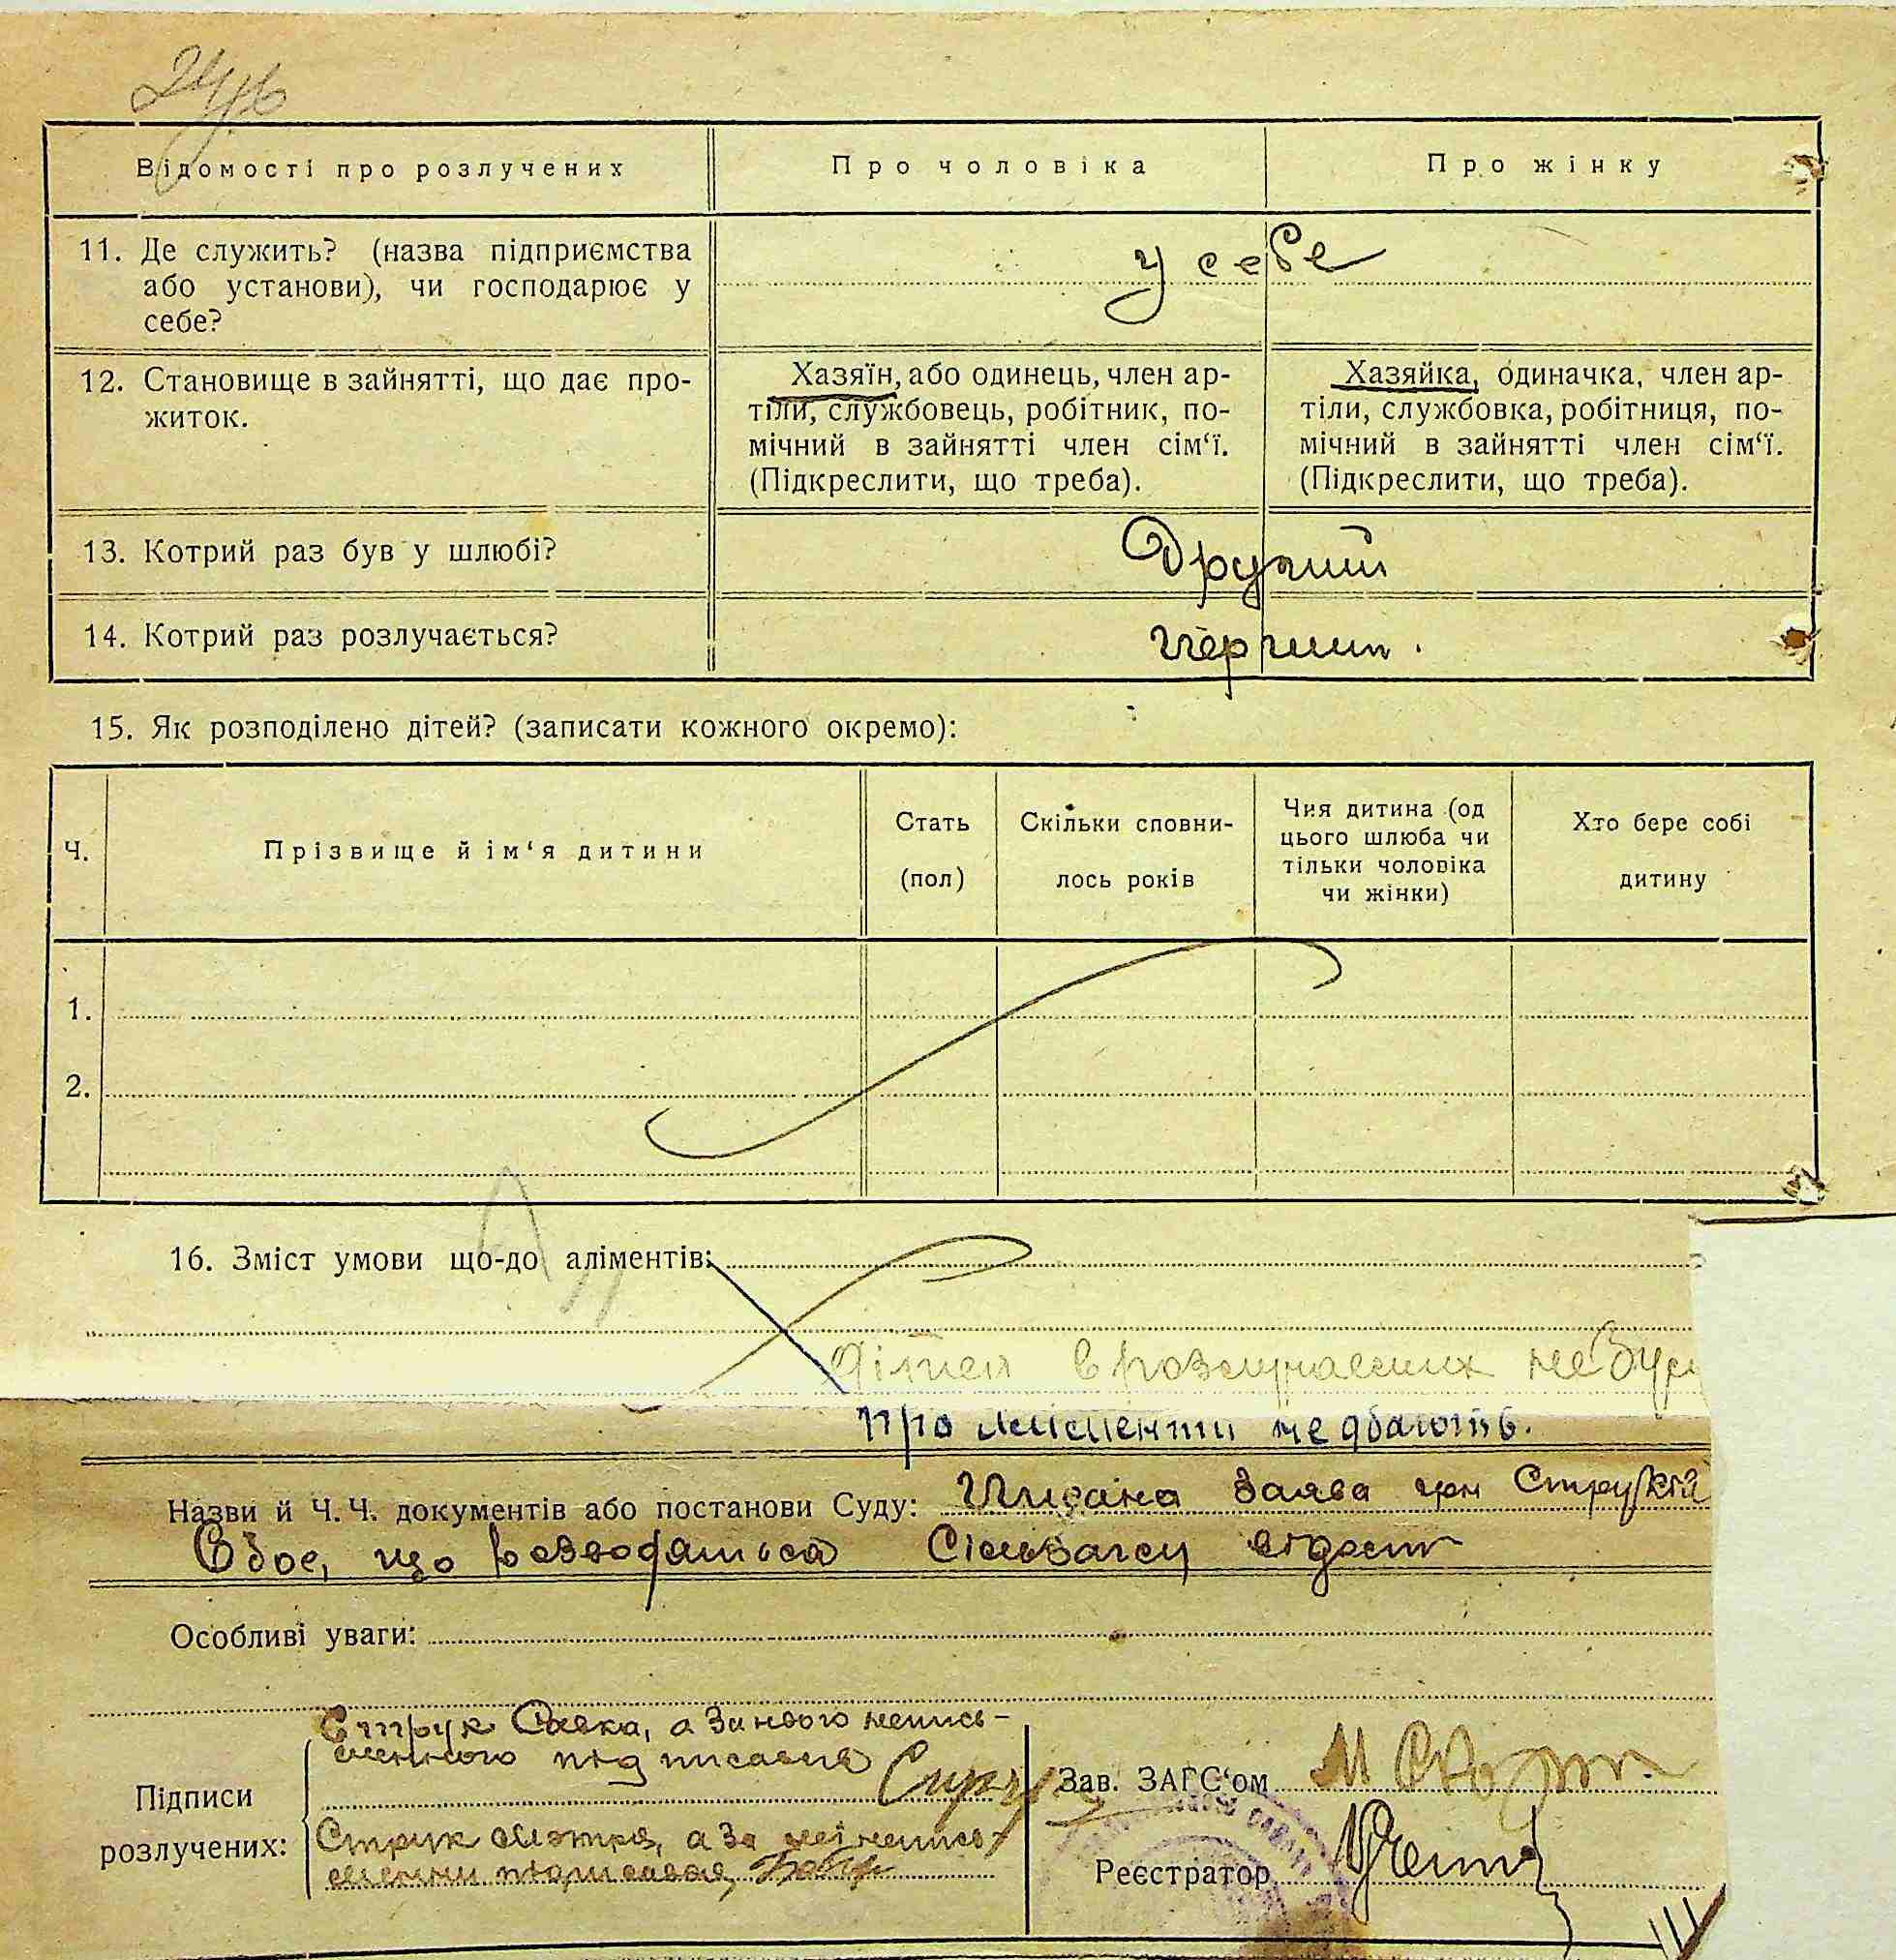 Відомості про розлучених
Про чоловіка
Про жінку
11. Де служить? (назва підприємства
або установи), чи господарює у
себе?
у себе
12. Становище в зайнятті, що дає про-
житок.
Хазяїн, або одинець, член ар-
тіли, службовець, робітник, по-
мічний в зайнятті член сім‘ї.
(Підкреслити, що треба).
Хазяйка, одиначка, член ар-
тіли, службовка, робітниця, по-
мічний в зайнятті член сім‘ї.
(Підкреслити, що треба).
13. Котрий раз був у шлюбі?
Другий
14. Котрий раз розлучається?
Перший.
15. Як розподілено дітей? (записати кожного окремо):
Ч.
Прізвище й ім‘я дитини
Стать
(пол)
Скільки сповни-
лось років
Чия дитина (од
цього шлюба чи
тільки чоловіка
чи жінки)
Хто бере собі
дитину
1.
2.
16. Зміст умови що-до аліментів:
Дітей в розлучаємих не
Про алименти не дбають.
Назви й Ч.Ч. документів або постанови Суду: заява гр-н
що розводяться
Особливі уваги:
Струк Савка, а за нього непись-
менного підписався
Підписи
розлучених:
Струк а за неї непись-
менну підписався
Зав. ЗАГС‘ом
Реєстратор